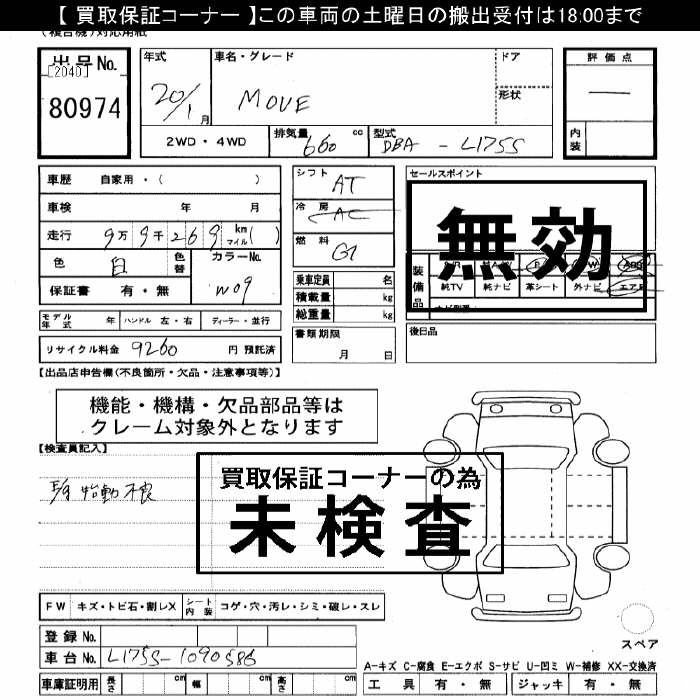 【 買取保証コーナー 】この車両の土曜日の搬出受付は18:00まで
(複合機)対応用紙
出品No.
[2040]
80974
年式
20/1月
車名・グレード
MOVE
ドア
形状
評価点
―
内装
2WD・4WD
排気量 660 cc
型式 DBA - L175S
車歴 自家用・( )
車検 年 月
走行 9万9千269 km マイル( )
色 白 色替
カラーNo. W09
保証書 有・無
シフト AT
冷房 AC
燃料
乗車定員 名
積載量 kg
総重量 kg
書類期限
月 日
セールスポイント
無効
装備品
純TV 純ナビ 革シート 外ナビ エアB
後日品
モデル年式 年 ハンドル 左・右 ディーラー・並行
リサイクル料金 9260 円 預託済
【出品店申告欄(不良箇所・欠品・注意事項等)】
機能・機構・欠品部品等は
クレーム対象外となります
【検査員記入】
始動不良
買取保証コーナーの為
未検査
FW キズ・トビ石・割レX シート内装 コゲ・穴・汚レ・シミ・破レ・スレ
登録No.
車台No. L175S-1090586
車庫証明用 長さ cm 幅 cm 高さ cm
スペア
A-キズ C-腐食 E-エクボ S-サビ U-凹ミ W-補修 XX-交換済
工具 有・無 ジャッキ 有・無